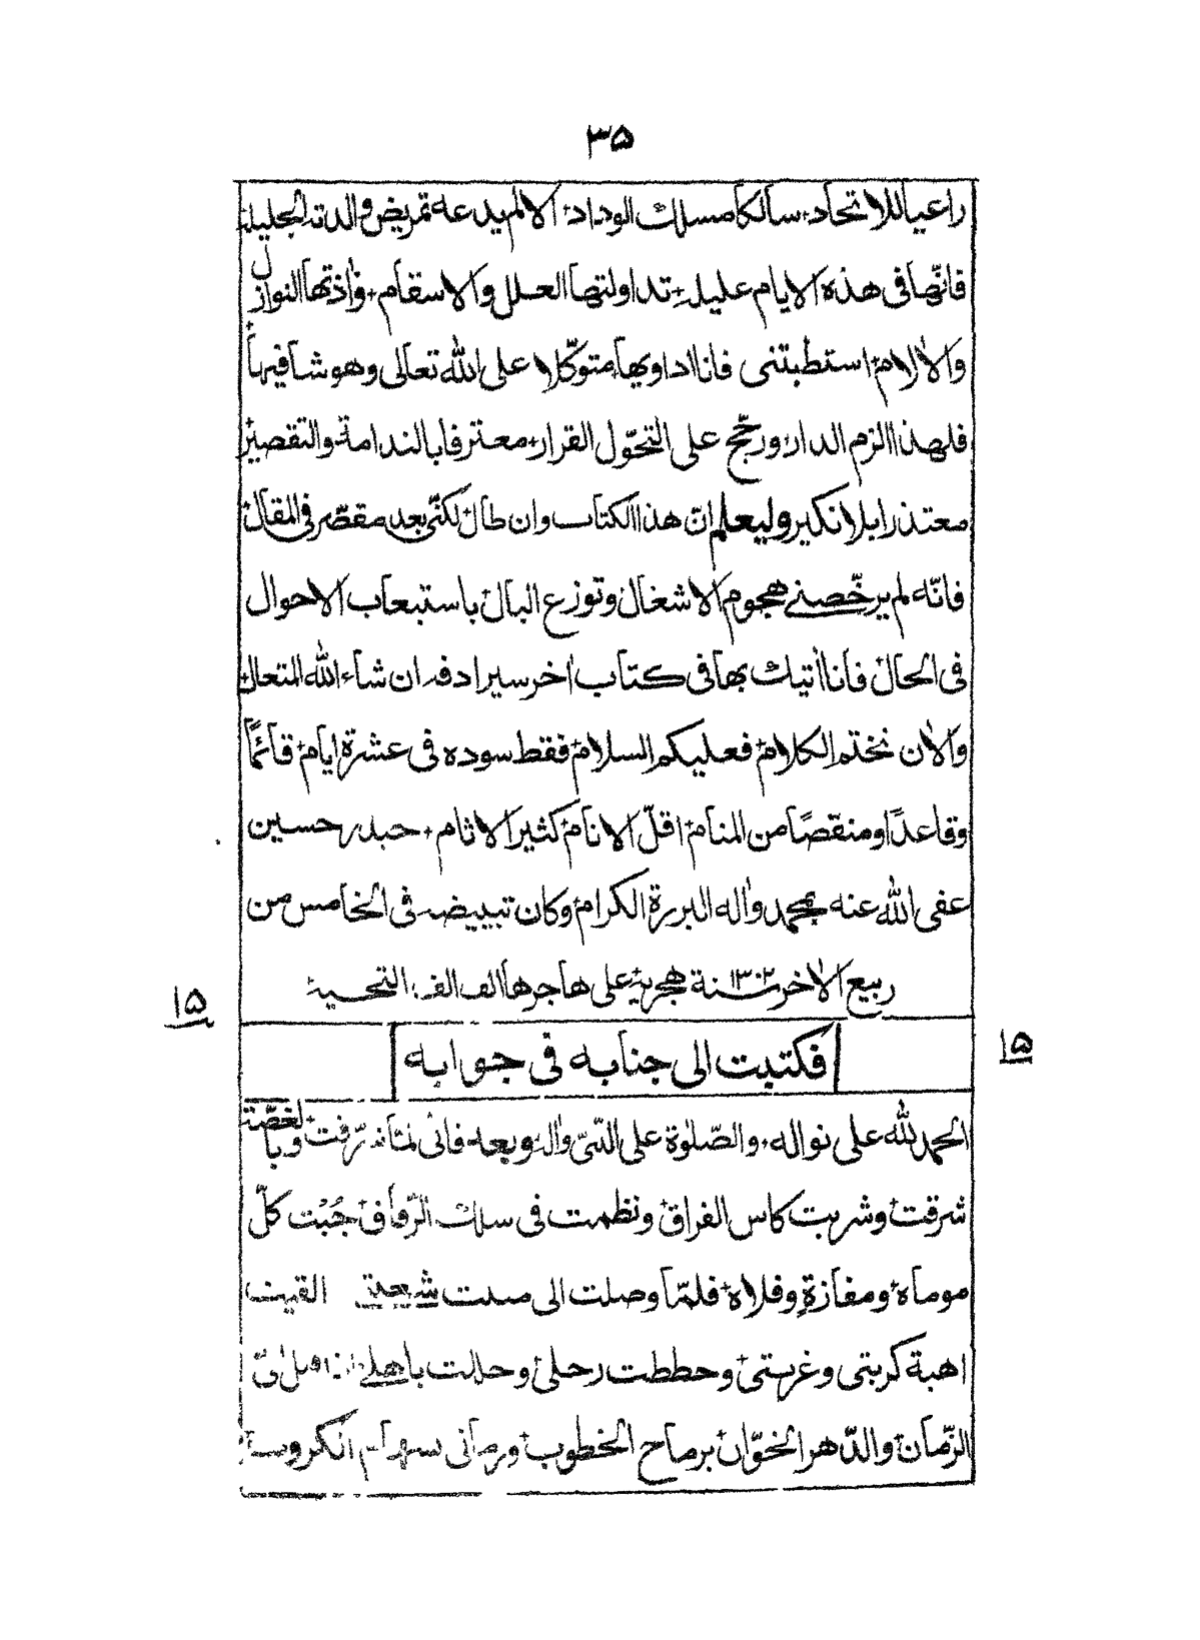 ٣٥
راعيا للاتحاد، سالكا مسلك الوداد، الا لم يدعه تمريض والدته الجليلة
فانّها فى هذه الايام عليلة تداولتها العلل والاسقام، واٰذتها النوازل
والاٰلام، استطبتنى فانا اداويها متوكّلا على اللّٰه تعالى وهو شافيها
فلهذا الزم الدار، ورجّح على التحوّل القرار، معترفا بالندامة والتقصير
معتذرا بلا نكير وليعلم انّ هذا الكتاب وان طال لكنّى بعد مقصّر فى المقال
فانّه لم يرخّصنى هجوم الاشغال وتوزع البال باستيعاب الاحوال
فى الحال فانا اٰتيك بها فى كتاب اٰخر سيرادفه ان شاء اللّٰه المتعال
والاٰن نختم الكلام فعليكم السلام فقط سوده فى عشرة ايام قائمًا
وقاعدًا ومنقصًا من المنام اقلّ الانام كثير الاثام، حيدر حسين
عفى اللّٰه عنه بمحمد واٰله البررة الكرام وكان تبييضه فى الخامس من
ربيع الاٰخر سنة ١٣٠٢ هجرية على هاجرها الف الف التحية
١٥
فكتبت الى جنابه فى جوابه
١٥
الحمد للّٰه على نواله، والصّلوٰة على النّبىّ واٰله وبعد فانى لمّا فرّقت وبالغصّة
شرقت وشربت كاس الفراق ونظمت فى سلك الرّفاق جُبْت كلّ
موماة ومفازةٍ وفلاة فلمّا وصلت الى القيت
اهبة كربتى وغربتى وحططت رحلى وحللت باهلى
الزّمان والدّهر الخوّان برماح الخطوب ورمانى بسهام الكروب